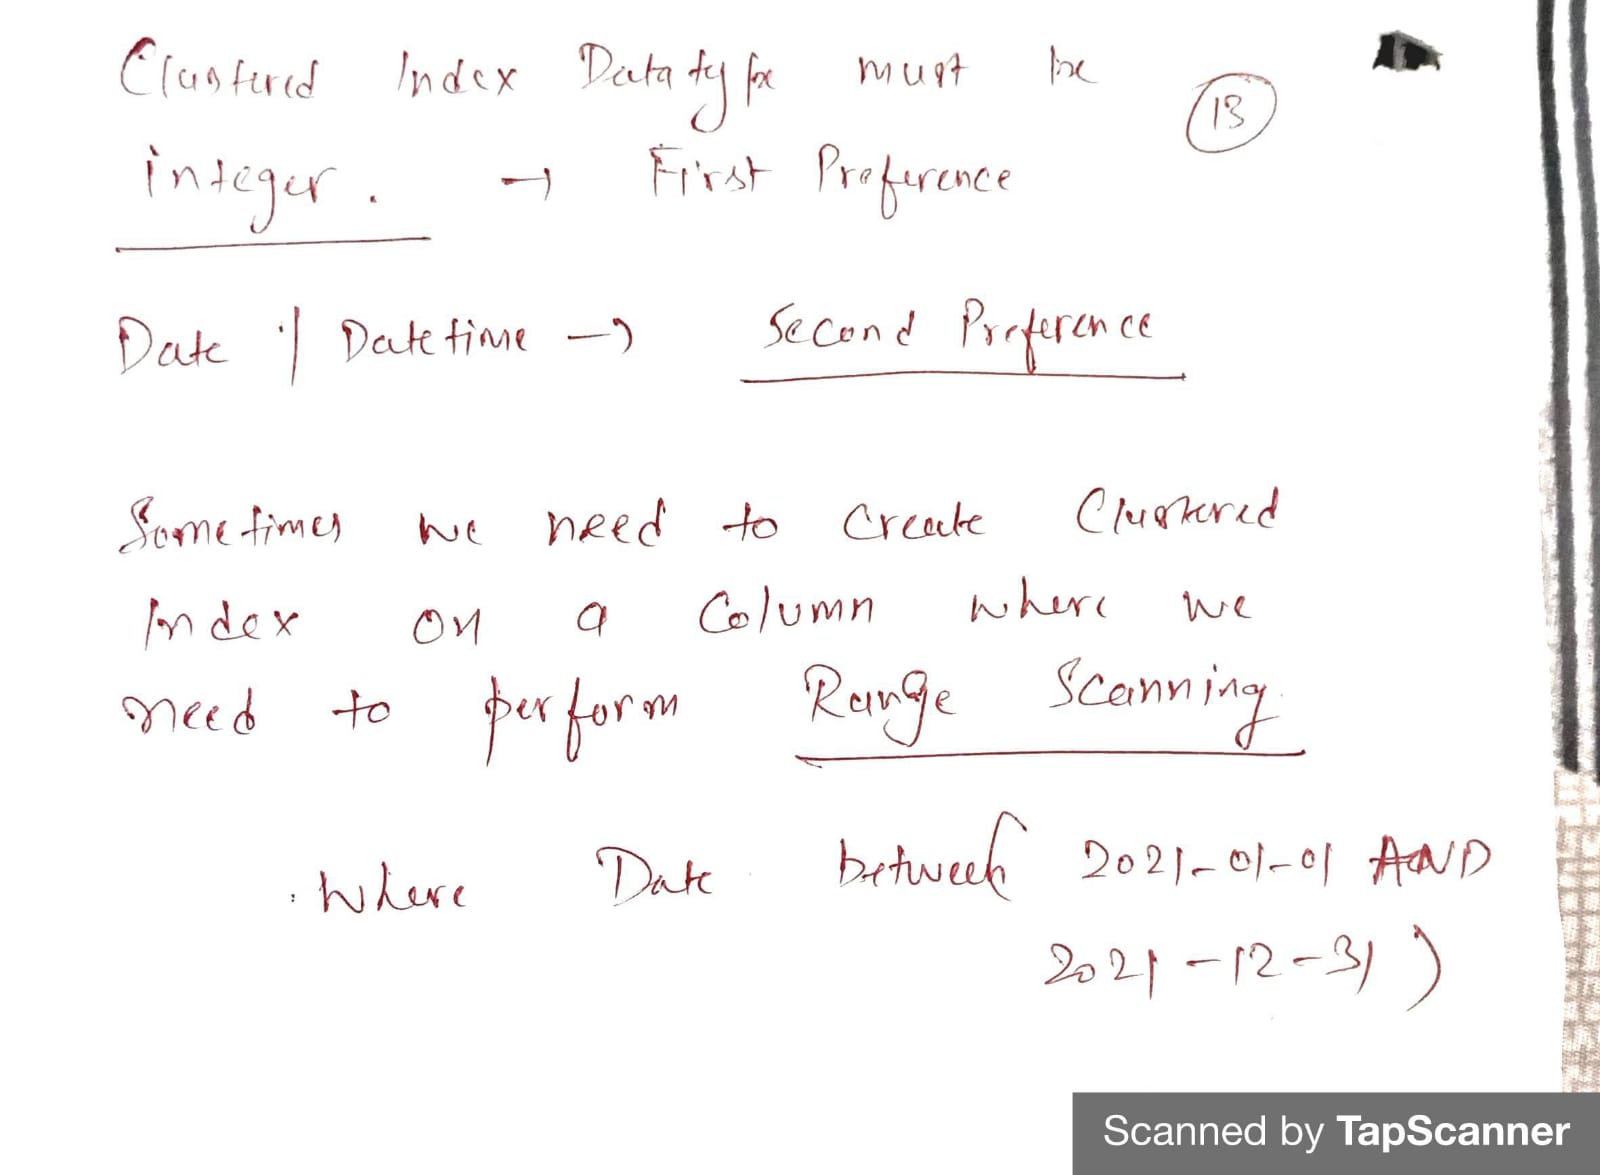 Clustered Index Datatype must be
13
integer. → First Preference
Date / Datetime → Second Preference
Sometimes we need to Create Clustered
Index on a Column where we
need to perform Range Scanning.
Where Date between ( 2021-01-01 AND
2021-12-31 )
Scanned by TapScanner